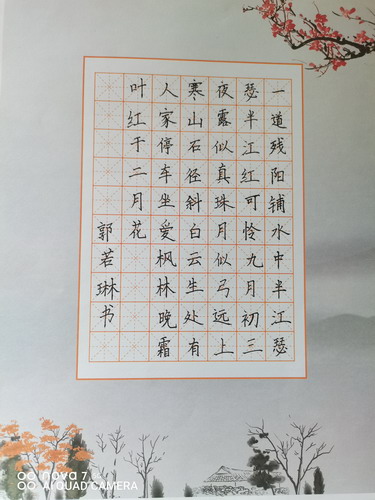 一道残阳铺水中半江瑟
瑟半江红可怜九月初三
夜露似真珠月似弓远上
寒山石径斜白云生处有
人家停车坐爱枫林晚霜
叶红于二月花
郭若琳书
nova 7
AI QUAD CAMERA